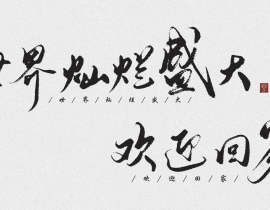 世界灿烂盛大
/世/界/灿/烂/盛/大/
欢迎回家
/欢/迎/回/家/